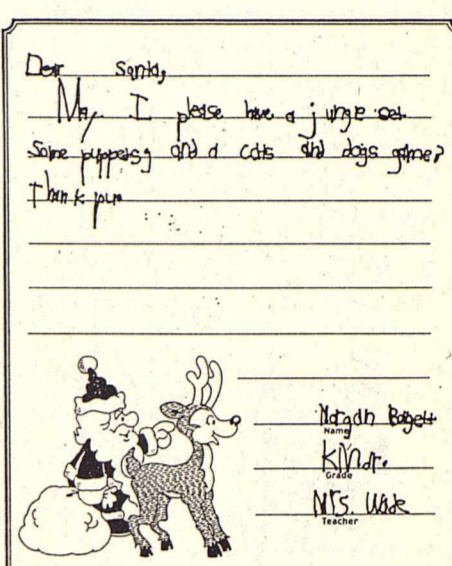 Dear Santa,
May I please have a jungle set
Some puppets, and a cats and dogs game?
Thank you
Morgan
Name
Grade
Mrs. Wade
Teacher